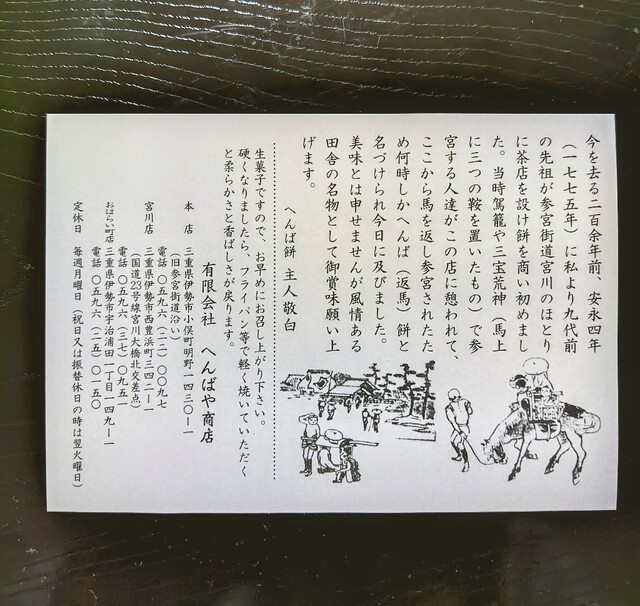 今を去る二百余年前、安永四年
(一七七五年)に私より九代前
の先祖が参宮街道宮川のほとり
に茶店を設け餅を商い初めまし
た。当時駕籠や三宝荒神(馬上
に三つの鞍を置いたもの)で参
宮する人達がこの店に憩われて、
ここから馬を返し参宮されたた
め何時しかへんば(返馬)餅と
名づけられ今日に及びました。
美味とは申せませんが風情ある
田舎の名物として御賞味願い上
げます。
へんば餅 主人敬白
生菓子ですので、お早めにお召し上がり下さい。
硬くなりましたら、フライパン等で軽く焼いていただく
と柔らかさと香ばしさが戻ります。
有限会社 へんばや商店
本店 三重県伊勢市小俣町明野一四三〇-一
(旧参宮街道沿い)
電話 〇五九六(二二)〇〇九七
宮川店 三重県伊勢市西豊浜町三四二-一
(国道23号線宮川大橋北交差点)
電話 〇五九六(三七)〇九五一
おはらい町店 三重県伊勢市宇治浦田一丁目一四九-一
電話 〇五九六(二五)〇一五〇
定休日 毎週月曜日(祝日又は振替休日の時は翌火曜日)